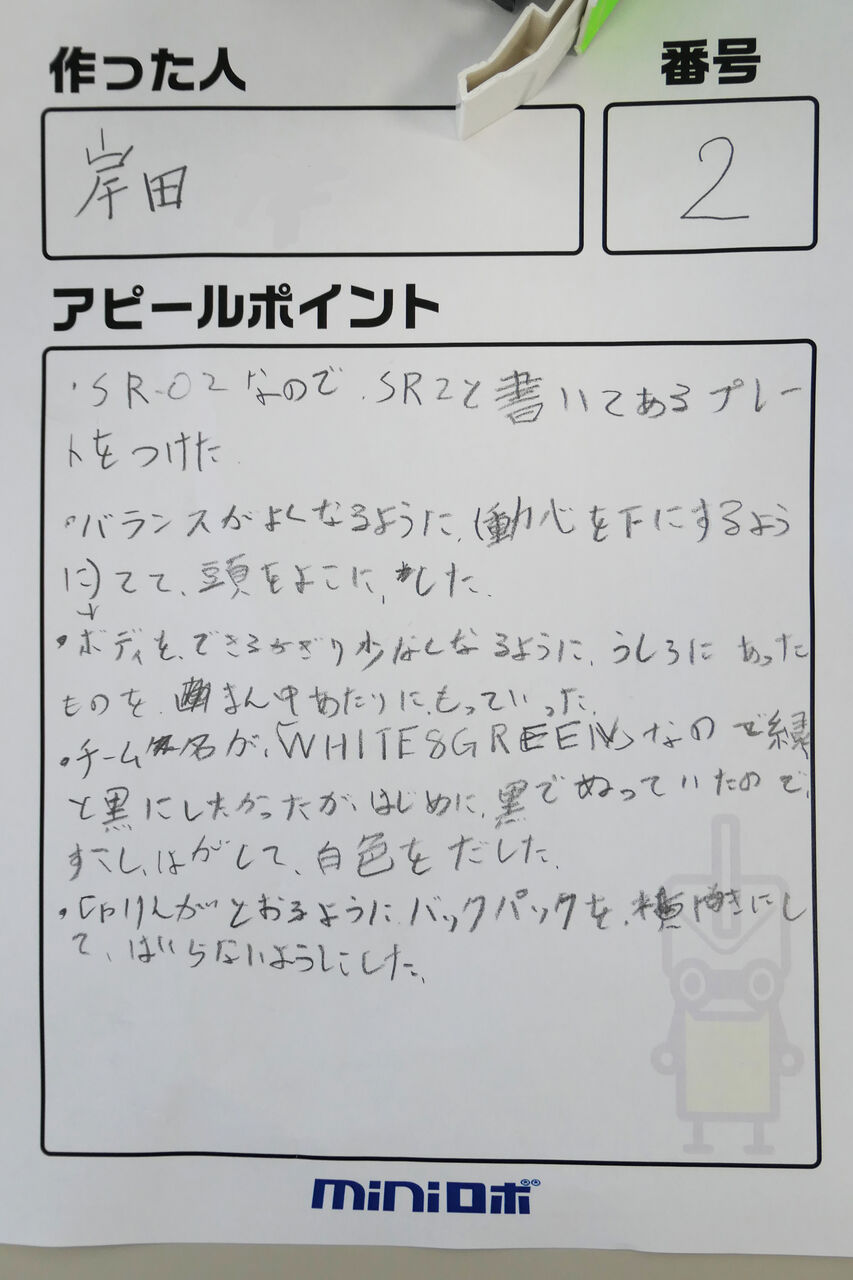 作った人
番号
岸田
2
アピールポイント
・SR-02なので、SR2と書いてあるプレー
トをつけた
・バランスがよくなるように、(動心を下にするよう
に)てて、頭をよこに、した、
・ボディを、できるかぎり少なくなるように、うしろにあった
ものを、まん中あたりに、もっていった、
・チーム名が、「WHITE&GREEN」なので緑
と黒にしたかったが、はじめに、黒でぬっていたので、
すこし、はがして、白色をだした、
・しゃりんがとおるようにバックパックを、横向きにし
て、ばらないようにした、
miniロボ